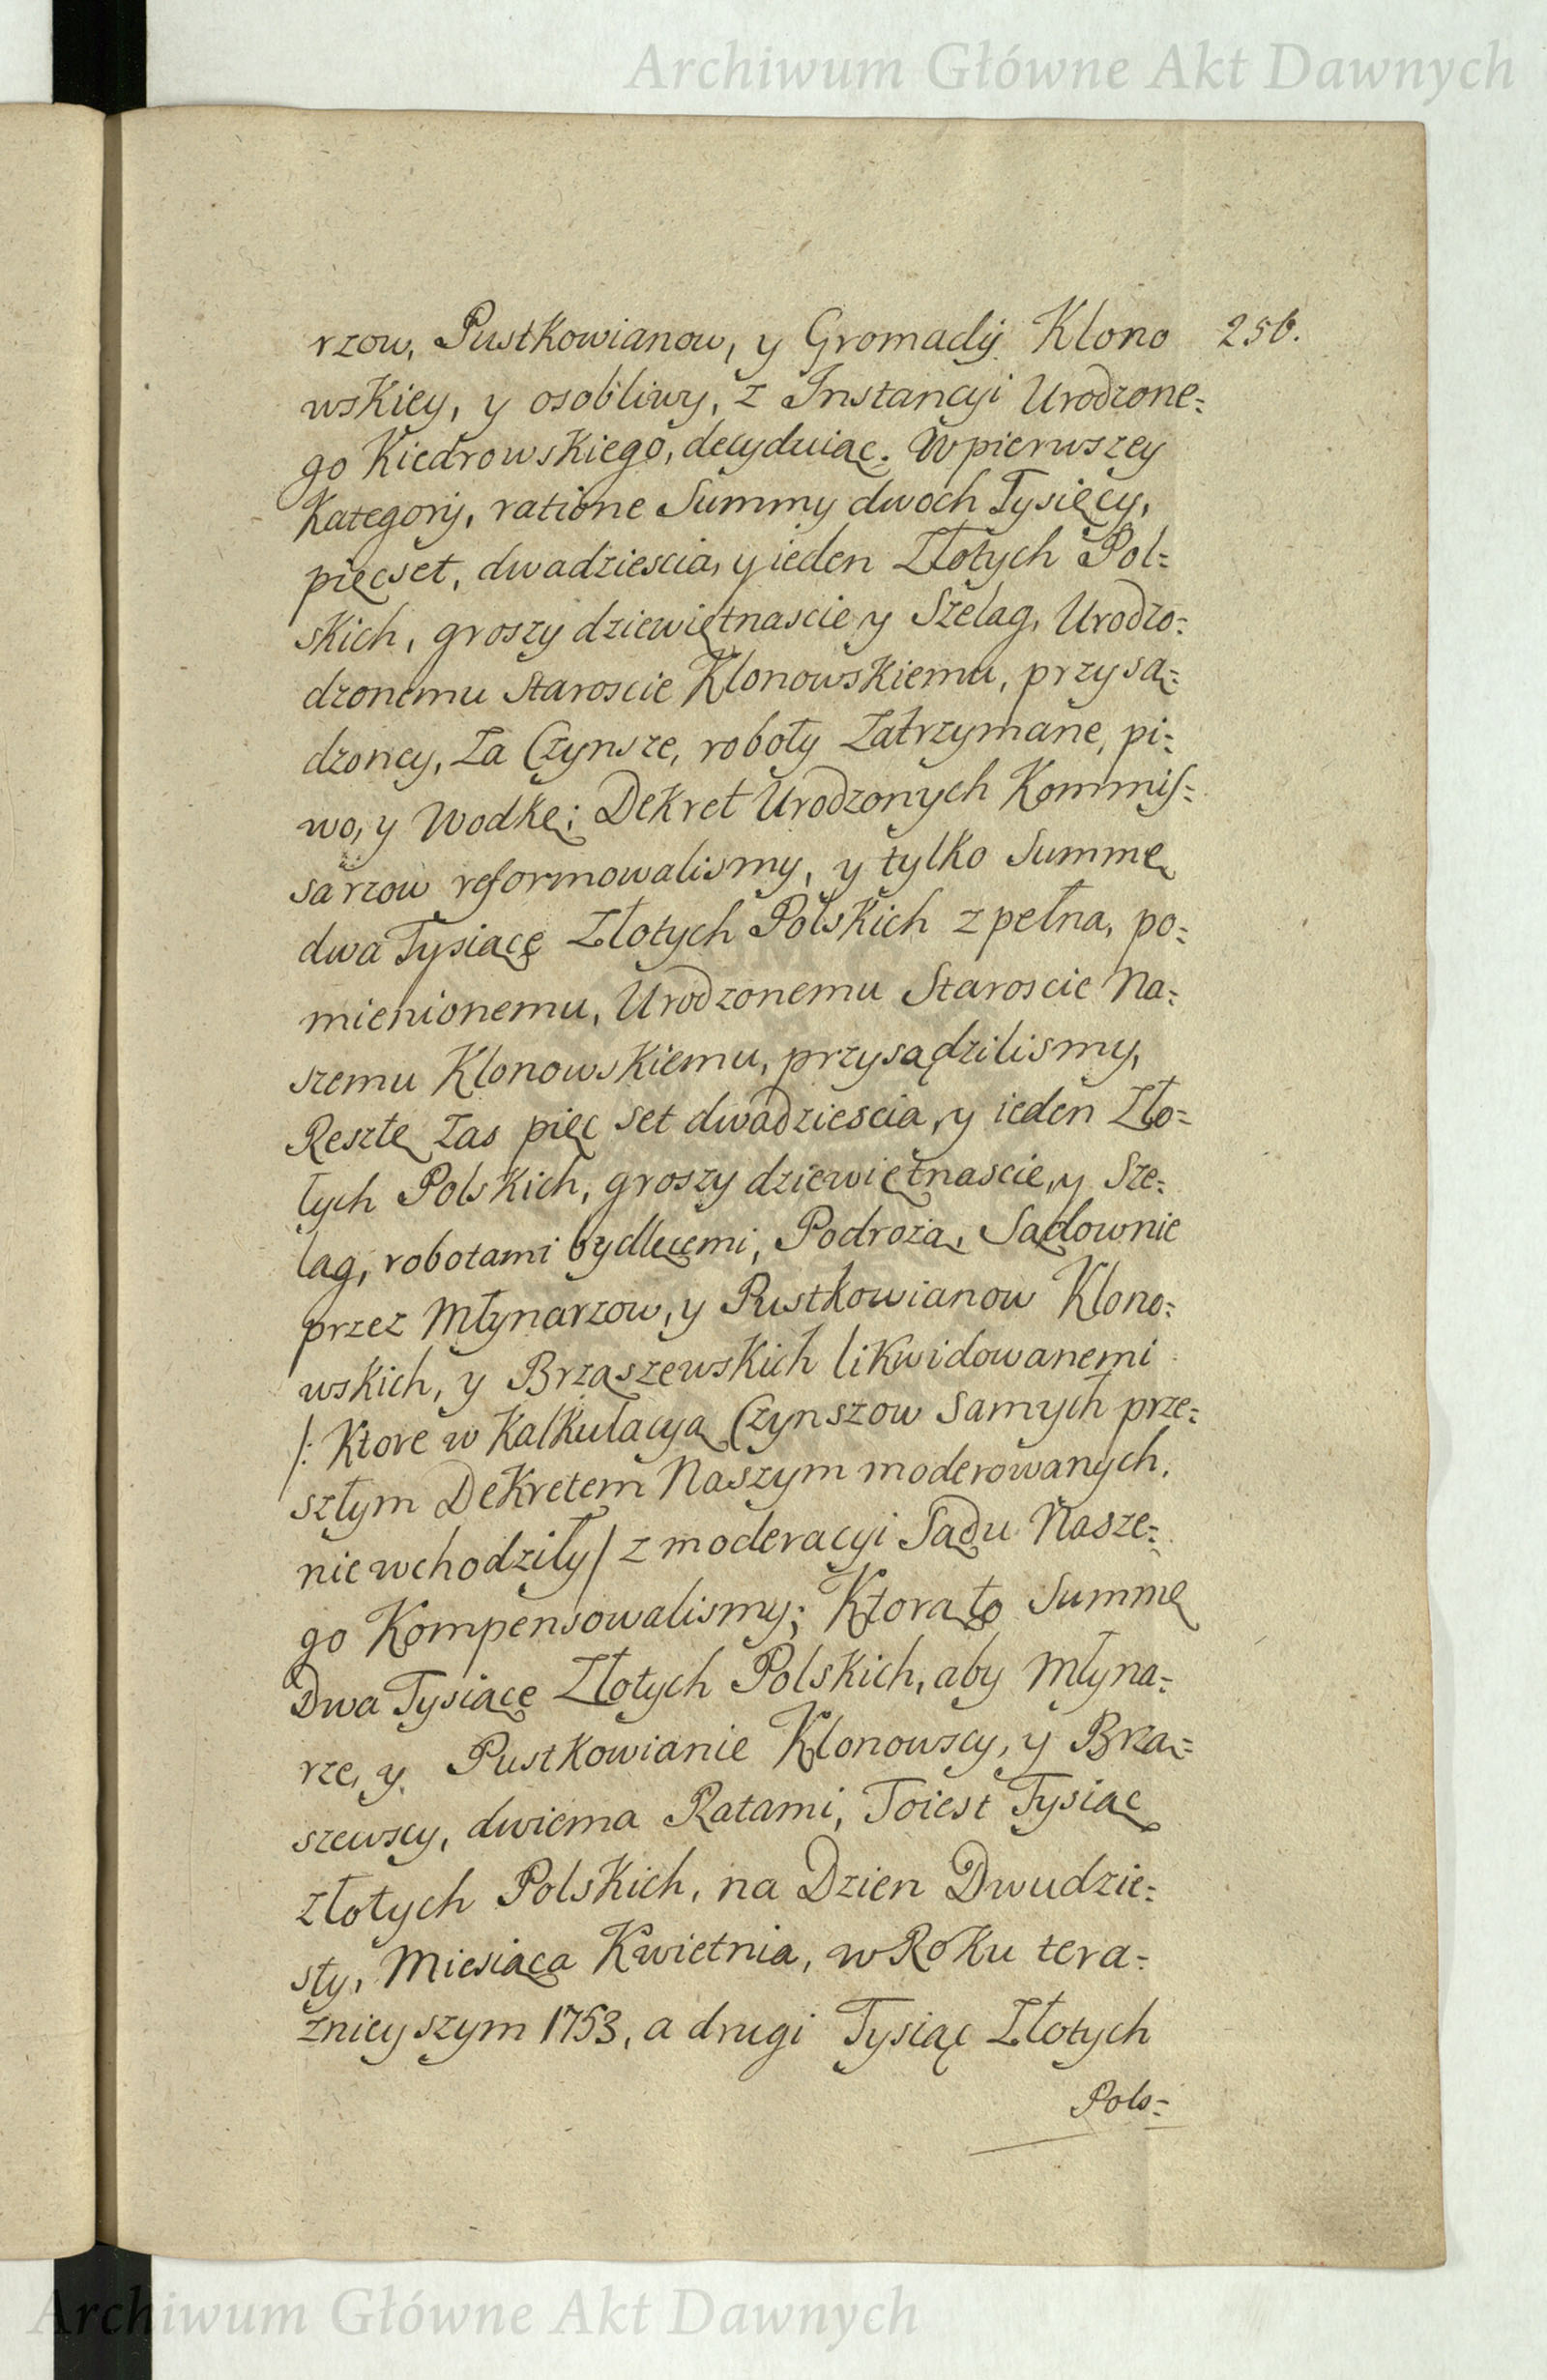 Archiwum Główne Akt Dawnych
256.
rzow, Pustkowianow, y Gromadÿ Klono
wskiey, y osobliwy, z Instancyi Urodzone=
go Kiedrowskiego, decyduiąc. W pierwszey
Kategorÿ, ratione Summy dwoch Tysięcy,
pięcset, dwadziescia, y ieden Złotych Pol=
skich, groszy dziewiętnascie y Szelag, Urodzo=
dzonemu Staroscie Klonowskiemu, przysą=
dzoney, za Czynsze, roboty zatrzymane, pi=
wo, y Wodkę; Dekret Urodzonych Kommis=
sarzow reformowalismy, y tylko Summę
dwa Tysiącę Złotych Polskich z pełna, po=
mienionemu, Urodzonemu Staroscie Na=
szemu Klonowskiemu, przysądzilismy,
Resztę zas pięc set dwadziescia, y ieden Zło=
tych Polskich, groszy dziewiętnascie, y Sze=
lag, robotami bydlęcemi, Podrożą, Sądownie
przez Młynarzow, y Pustkowianow Klono=
wskich, y Brząszewskich likwidowanemi
/: Ktore w Kalkulacyą Czynszow samych prze=
szłym Dekretem Naszym moderowanych,
nie wchodziły/ z moderacyi Sądu Nasze=
go Kompensowalismy; Ktorą to Summę
Dwa Tysiącę Złotych Polskich, aby Młyna=
rze, y Pustkowianie Klonowscy, y Brzą=
szewscy, dwiema Ratami, Toiest Tysiąc
złotych Polskich, na Dzien Dwudzie=
sty, Miesiąca Kwietnia, w Roku tera=
znieyszym 1753, a drugi Tysiąc Złotych
Pols=
Archiwum Główne Akt Dawnych